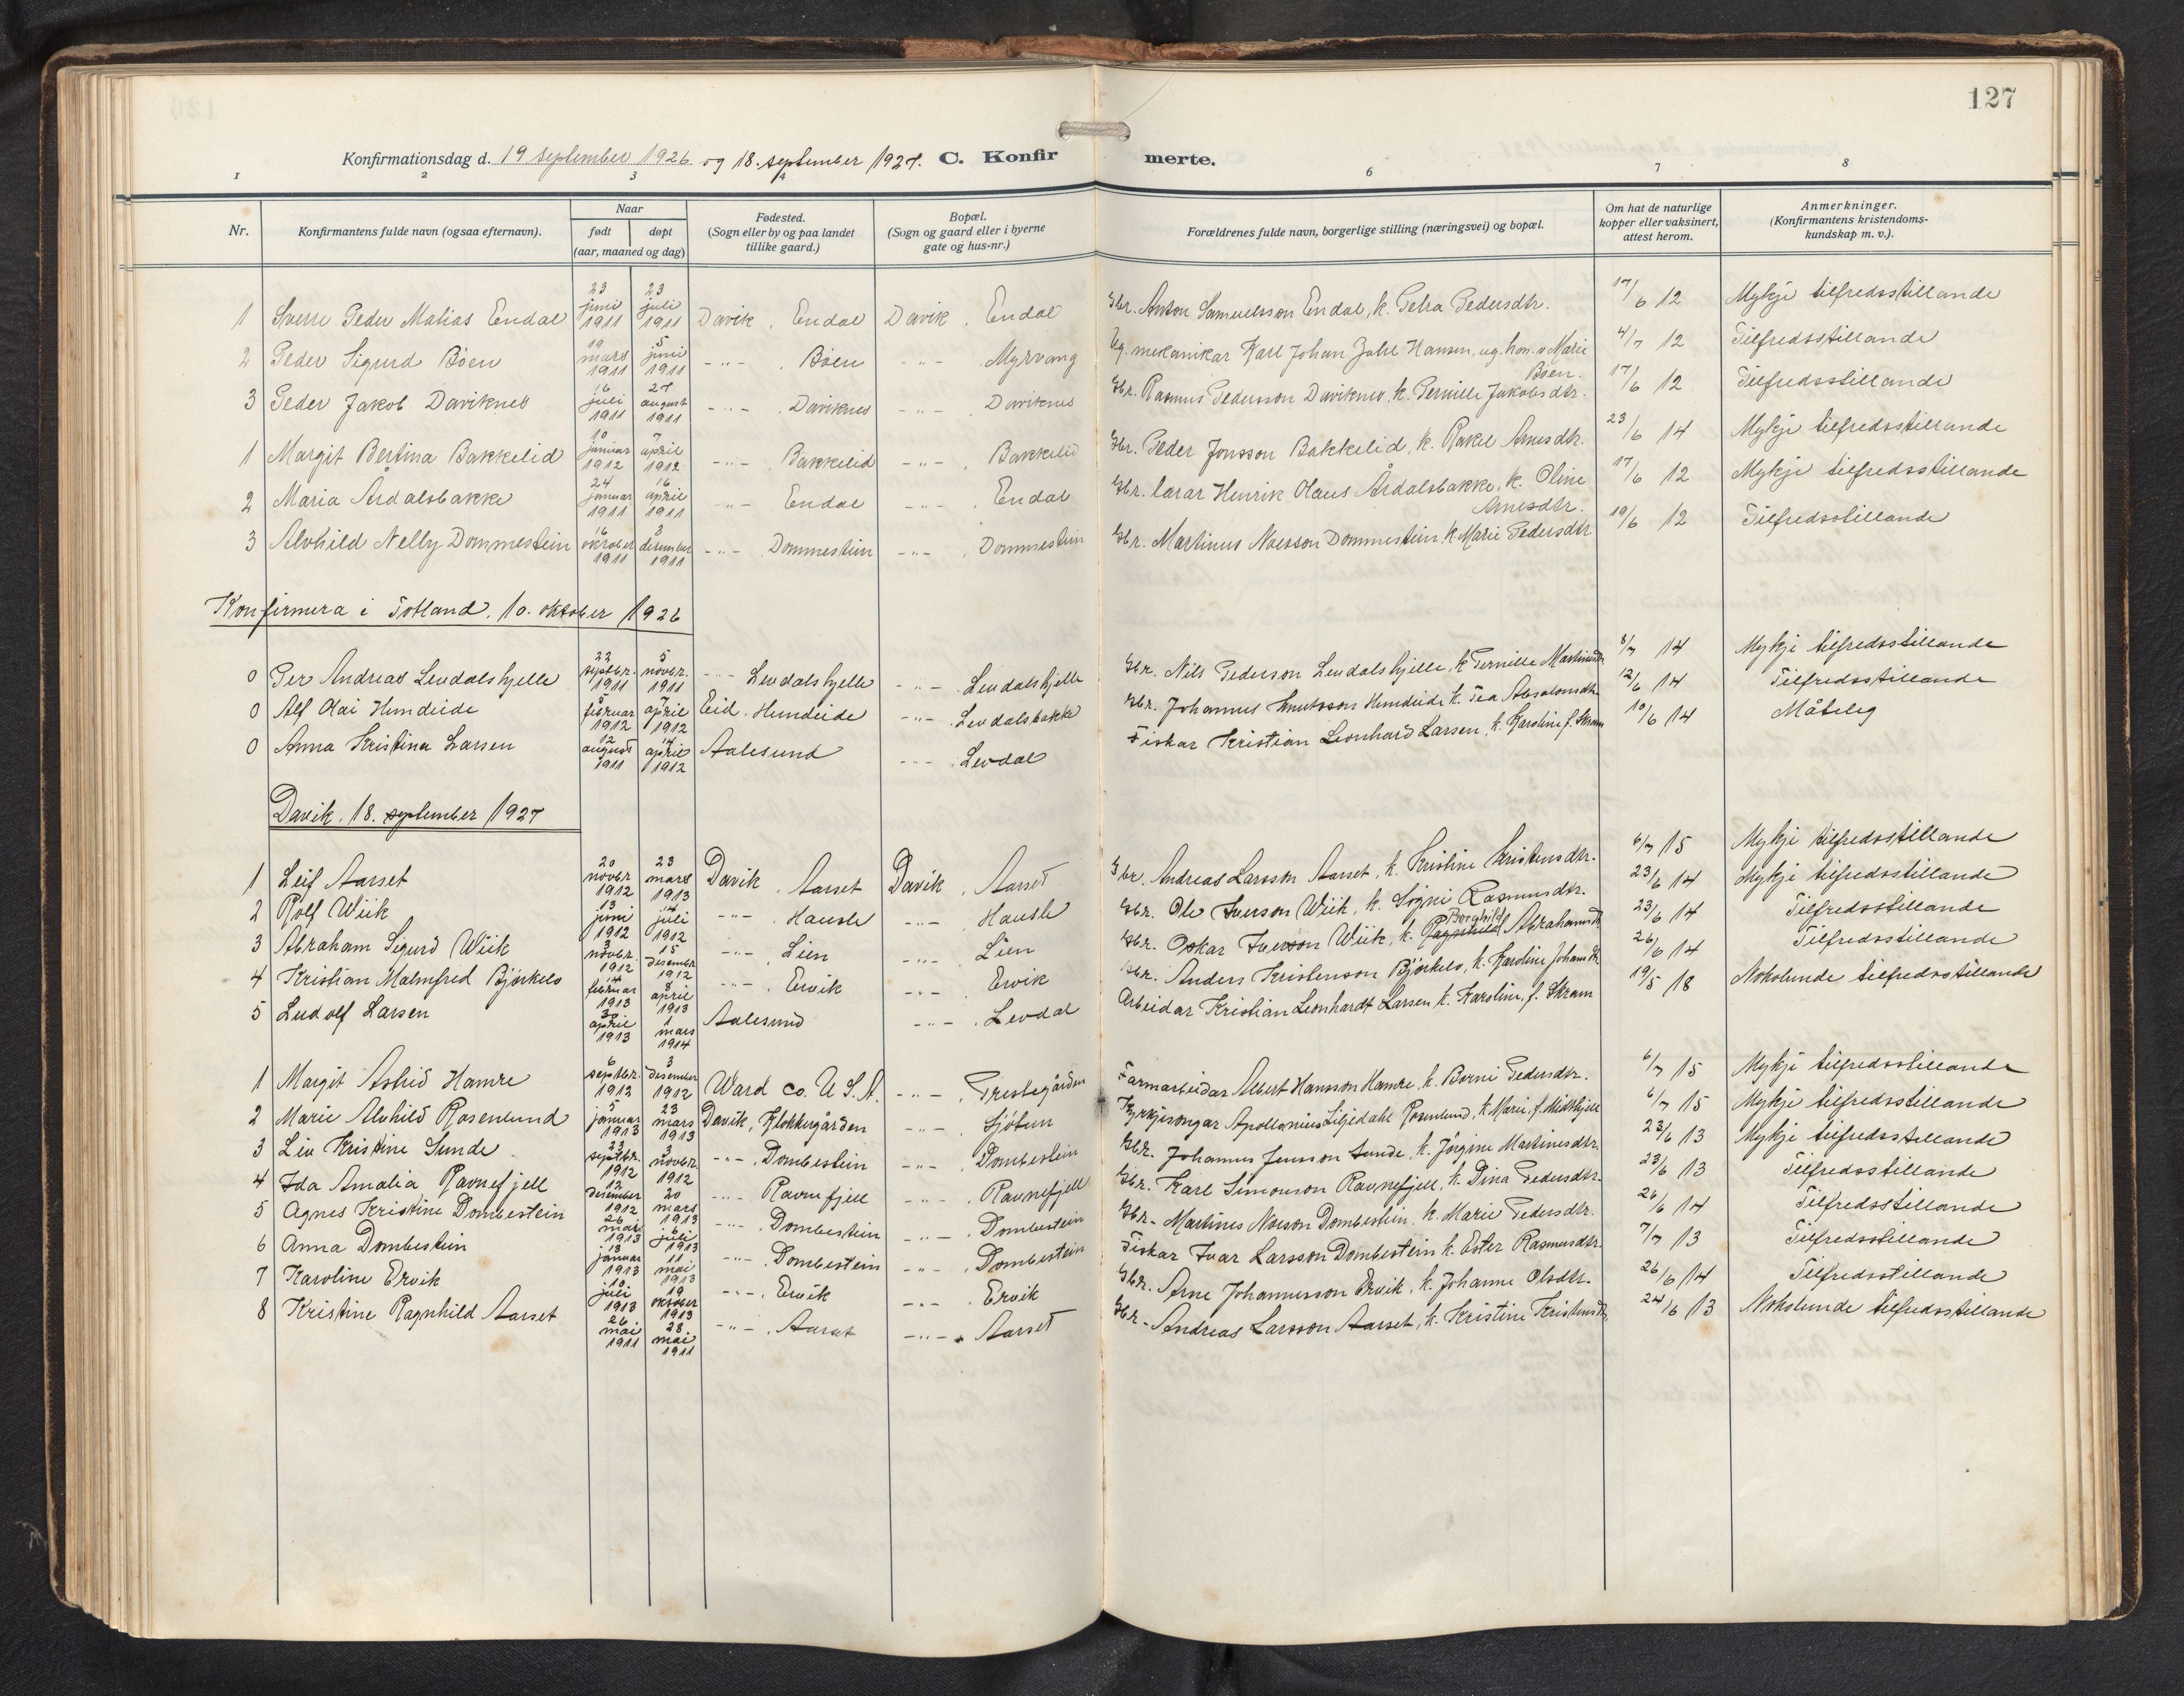 127
Konfirmationsdag d. 19 september 1926 og 18. september 1927. C. Konfirmerte.
1 2 3 4 6 7 8
Nr. Konfirmantens fulde navn (ogsaa efternavn). Naar født døpt (aar, maaned og dag) Fødested. (Sogn eller by og paa landet tillike gaard.) Bopæl. (Sogn og gaard eller i byerne gate og hus-nr.) Forældrenes fulde navn, borgerlige stilling (næringsvei) og bopæl. Om hat de naturlige kopper eller vaksinert, attest herom. Anmerkninger. (Konfirmantens kristendomskundskap m. v.).
1 Sverre Peder Matias Endal 23 juni 1911 23 juli 1911 Davik, Endal Davik, Endal Gbr. Anton Samuelsson Endal, k. Petra Pedersdtr. 17/6 12 Mykje tilfredsstillande
2 Peder Sigurd Böen 19 mars 1911 5 juni 1911 -"- . Böen -"- . Myrvang Ug. mekanikar Karl Johan Juhl Hansen, ug. kon. v. Marie Böen. 4/7 12 Tilfredsstillande
3 Peder Jakob Daviknes 16 juli 1911 27 august 1911 -"- . Daviknes -"- . Daviknes Gbr. Rasmus Pedersson Daviknes, k. Pernille Jakobsdtr. 17/6 12 Tilfredsstillande
1 Margit Bertina Bakkelid 10 januar 1912 7 april 1912 -"- . Bakkelid -"- . Bakkelid Gbr. Peder Jonsson Bakkelid, k. Rakel Arnesdtr. 23/6 14 Mykje tilfredsstillande
2 Maria Årdalsbakke 24 januar 1911 16 april 1911 -"- Endal -"- . Endal Gbr. lærar Henrik Olaus Årdalsbakke, k. Oline Arnesdtr. 17/6 12 Mykje tilfredsstillande
3 Alvhild Nelly Dommestein 16 oktober 1911 3 desember 1911 -"- . Dommestein -"- . Dommestein Gbr. Martinus Noesson Dommestein, k. Marie Pedersdtr. 19/6 12 Tilfredsstillande
Konfirmera i Totland. 10. oktober 1926
0 Per Andreas Levdalshjelle 22 septbr. 1911 5 novbr. 1911 -"- Levdalshjelle -"- . Levdalshjelle Gbr. Nils Pederson Levdalshjelle, k. Pernille Martinusdtr. 8/7 14 Mykje tilfredsstillande
0 Alf Olai Hundeide 5 februar 1912 7 april 1912 Eid. Hundeide -"- . Levdalsbakke Gbr. Johannes Knutsson Hundeide k. Tea Absalonsdtr. 12/6 14 Tilfredsstillande
0 Anna Kristina Larsen 12 august 1911 14 april 1912 Aalesund -"- . Levdal Fiskar Kristian Leonhard Larsen, k. Karoline f. Skram 10/6 14 Måteleg
Davik. 18. september 1927
1 Leif Aarset 20 novbr 1912 23 mars 1913 Davik . Aarset Davik . Aarset Gbr. Andreas Larsson Aarset, k. Kristine Kristensdtr. 6/7 15 Mykje tilfredsstillande
2 Rolf Wiik 13 juni 1912 14 juli 1912 -"- . Hausle -"- . Hausle Gbr. Ole Iverson Wiik, k. Signi Rasmusdtr. 23/6 14 Mykje tilfredsstillande
3 Abraham Sigurd Wiik 3 novbr. 1912 15 desember 1912 -"- . Lien -"- . Lien Gbr. Oskar Iverson Wiik, k. Ragnhild Borghild Abrahamsdtr. 23/6 14 Tilfredsstillande
4 Kristian Malmfred Björkelo 14 februar 1913 8 april 1913 -"- . Ervik -"- . Ervik Gbr. Anders Kristenson Björkelo, k. Karoline Johansdtr. 26/6 14 Tilfredsstillande
5 Ludolf Larsen 30 april 1913 1 mars 1914 Aalesund -"- . Levdal Arbeidar Kristian Leonhardt Larsen, k. Karoline, f. Skram 19/5 18 Nokolunde tilfredsstillande
1 Margit Astrid Hamre 6 septbr. 1912 3 desember 1912 Ward Co. U.S.A. -"- . Prestegården Farmarbeidar Albert Hansson Hamre, k. Borni Pedersdtr. 6/7 15 Mykje tilfredsstillande
2 Marie Alvhild Rosenlund 5 januar 1913 23 mars 1913 Davik, Klokkergården -"- . Sjötun Kyrkjesongar Apollonius Liljedahl Rosenlund, k. Marie, f. Midthjell 6/7 15 Mykje tilfredsstillande
3 Liv Kristine Sunde 23 septbr. 1912 3 novbr. 1912 -"- . Dombestein -"- . Dombestein Gbr. Johannes Jensson Sunde, k. Jörgine Martinusdtr. 23/6 13 Mykje tilfredsstillande
4 Ida Amalia Ravnefjell 12 desember 1912 20 mars 1913 -"- . Ravnefjell -"- . Ravnefjell Gbr. Karl Simonson Ravnefjell, k. Dina Pedersdtr. 23/6 13 Tilfredsstillande
5 Agnes Kristine Dombestein 26 mai 1913 6 juli 1913 -"- . Dombestein -"- . Dombestein Gbr. Martines Noeson Dombestein. k. Marie Pedersdtr. 26/6 14 Tilfredsstillande
6 Anna Dombestein 13 januar 1913 11 mai 1913 -"- . Dombestein -"- . Dombestein Fiskar Ivar Larsson Dombestein k. Ester Rasmusdtr. 7/7 13 Tilfredsstillande
7 Karoline Ervik 10 juli 1913 19 oktober 1913 -"- . Ervik -"- . Ervik Gbr. Arne Johannesson Ervik, k. Johanne Olsdtr. 26/6 14 Tilfredsstillande
8 Kristine Ragnhild Aarset 26 mai 1911 28 mai 1911 -"- . Aarset -"- . Aarset Gbr. Andreas Larsson Aarset, k. Kristine Kristensdtr. 24/6 13 Nokolunde tilfredsstillande